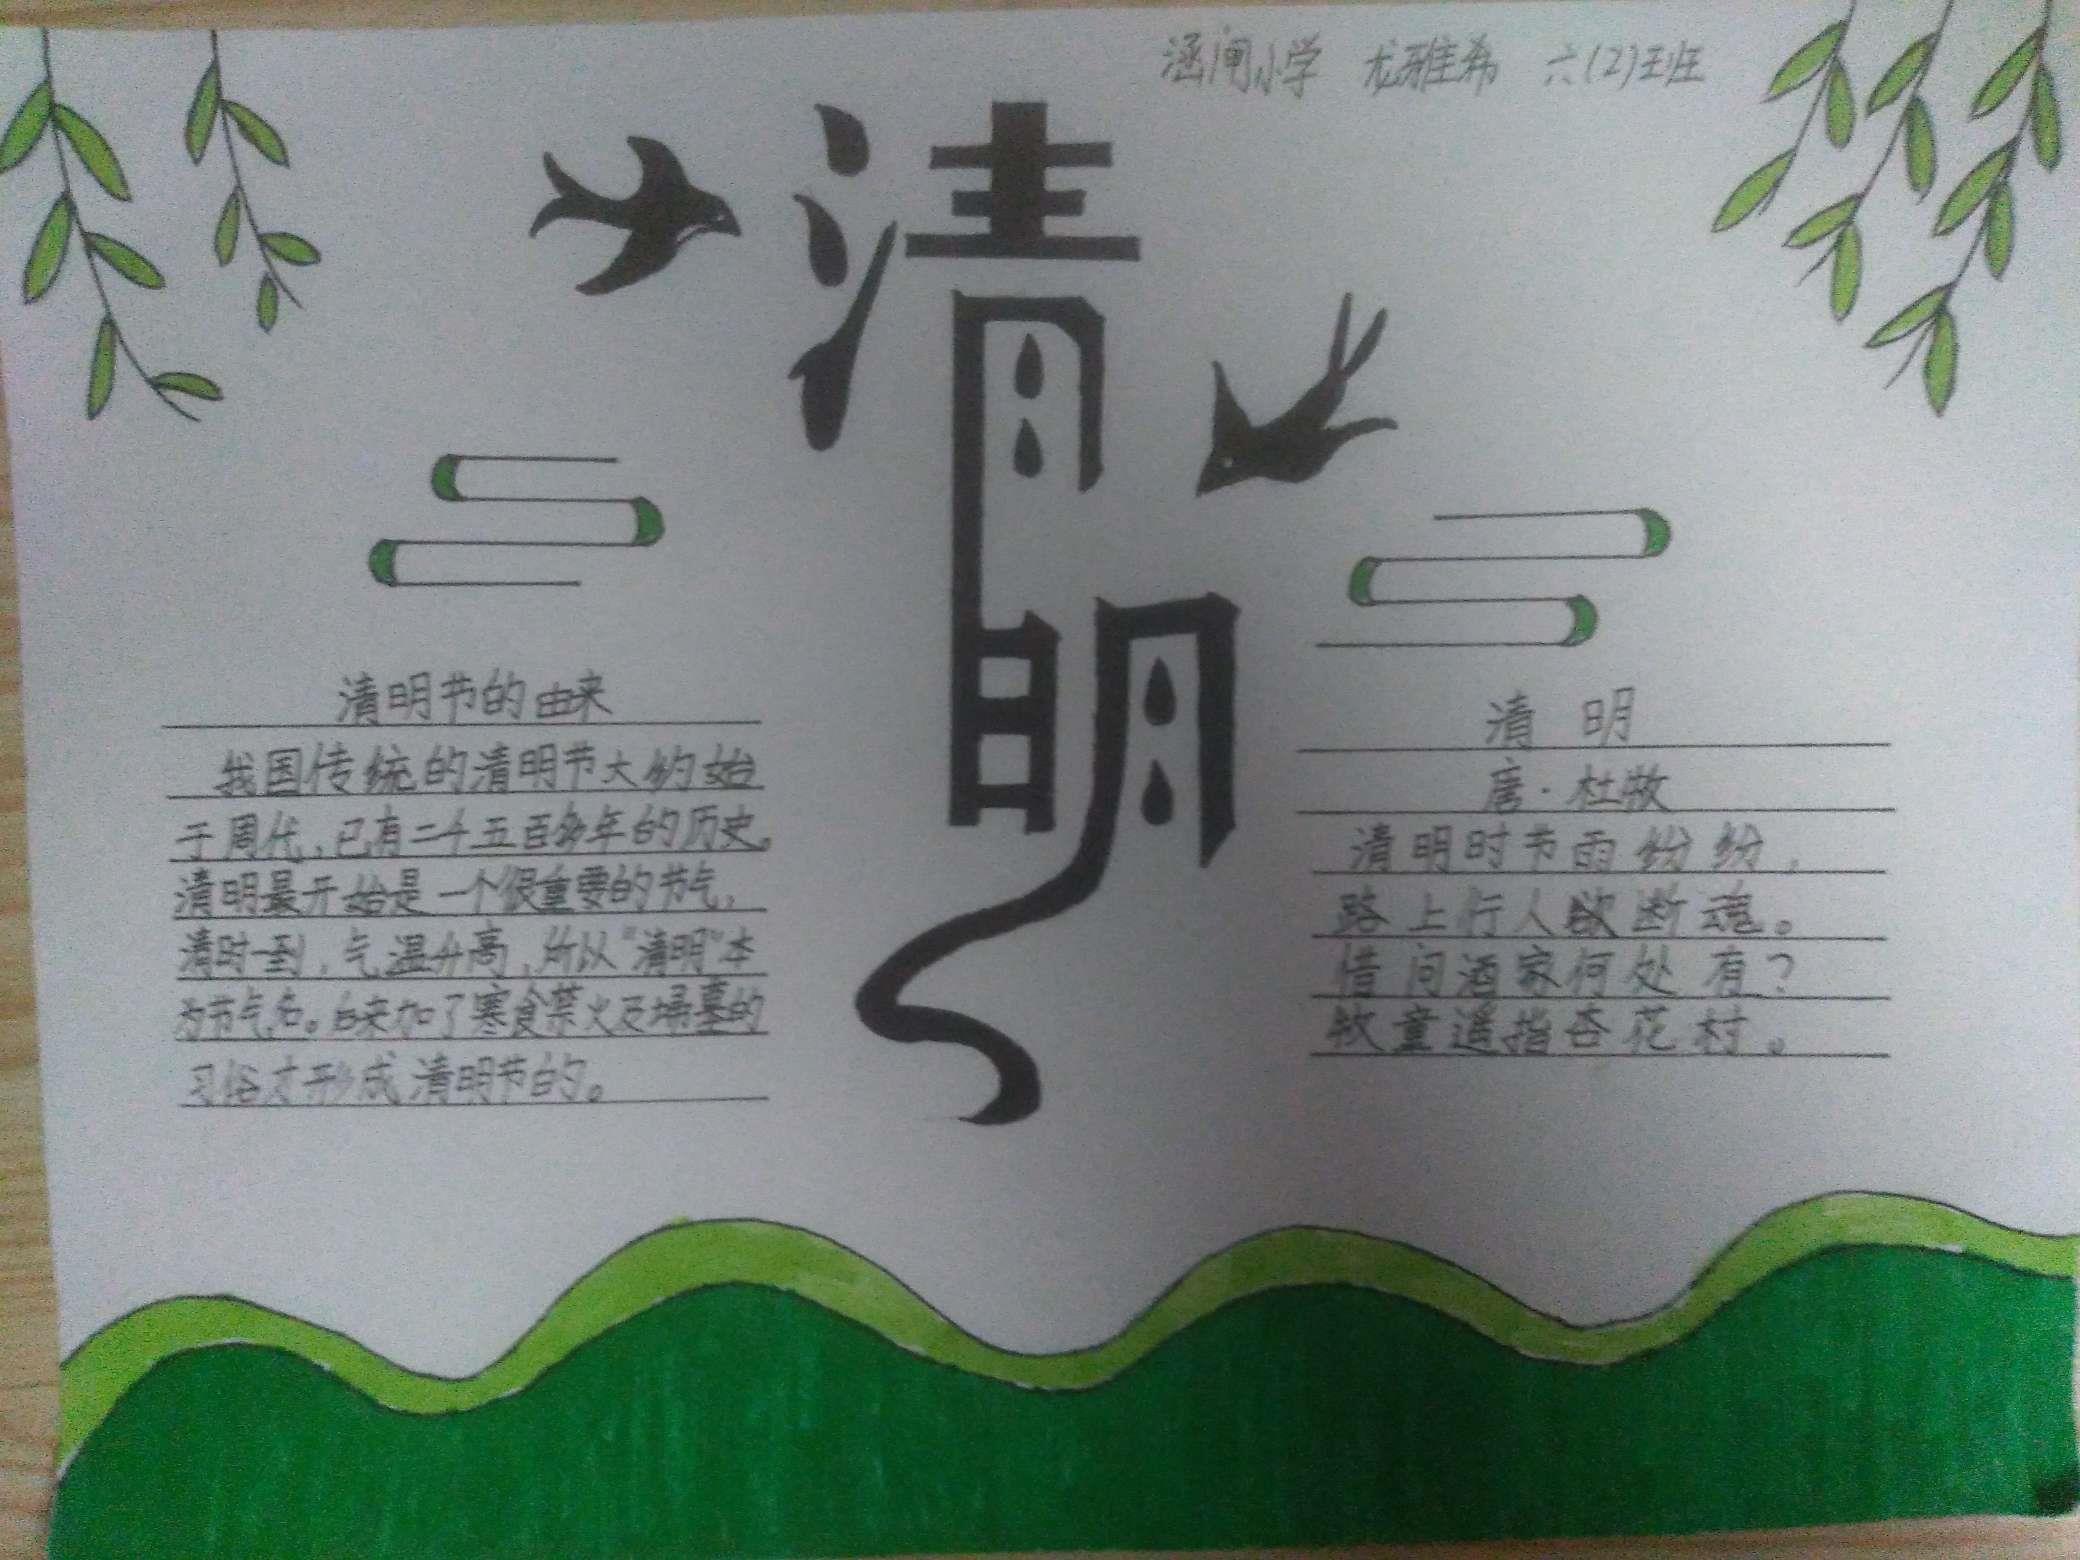 涵闸小学 尤雅希 六(2)班
清明
清明节的由来
我国传统的清明节大约始
于周代,已有二千五百多年的历史。
清明最开始是一个很重要的节气,
清时一到,气温升高,所以"清明"本
为节气名。后来加了寒食禁火及埽墓的
习俗才形成清明节的。
清 明
唐·杜牧
清明时节雨纷纷,
路上行人欲断魂。
借问酒家何处有?
牧童遥指杏花村。